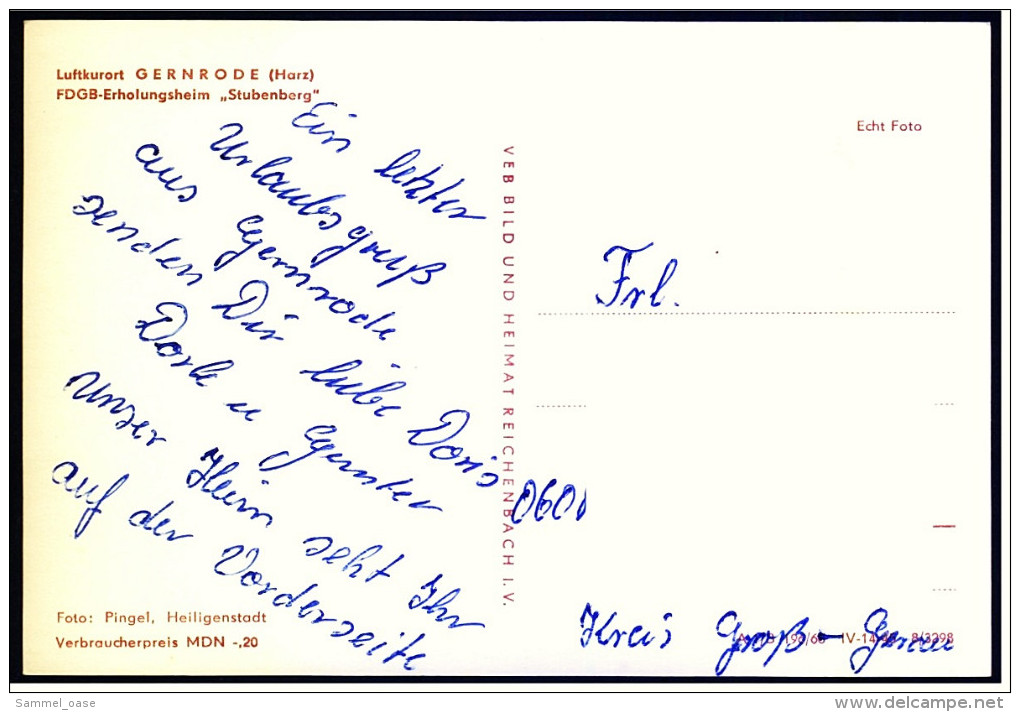 Luftkurort GERNRODE (Harz)
FDGB-Erholungsheim „Stubenberg"
Echt Foto
Ein letzter
Urlaubsgruß
aus Gernrode
senden Dir liebe Doris
u Günter
unser Heim seht Ihr
auf der Vorderseite
VEB BILD UND HEIMAT REICHENBACH I. V.
Frl.
0601
Kreis Groß-Gerau
IV-14-48 8/3298
Foto: Pingel, Heiligenstadt
Verbraucherpreis MDN -,20
Sammel_oase
www.delcampe.net